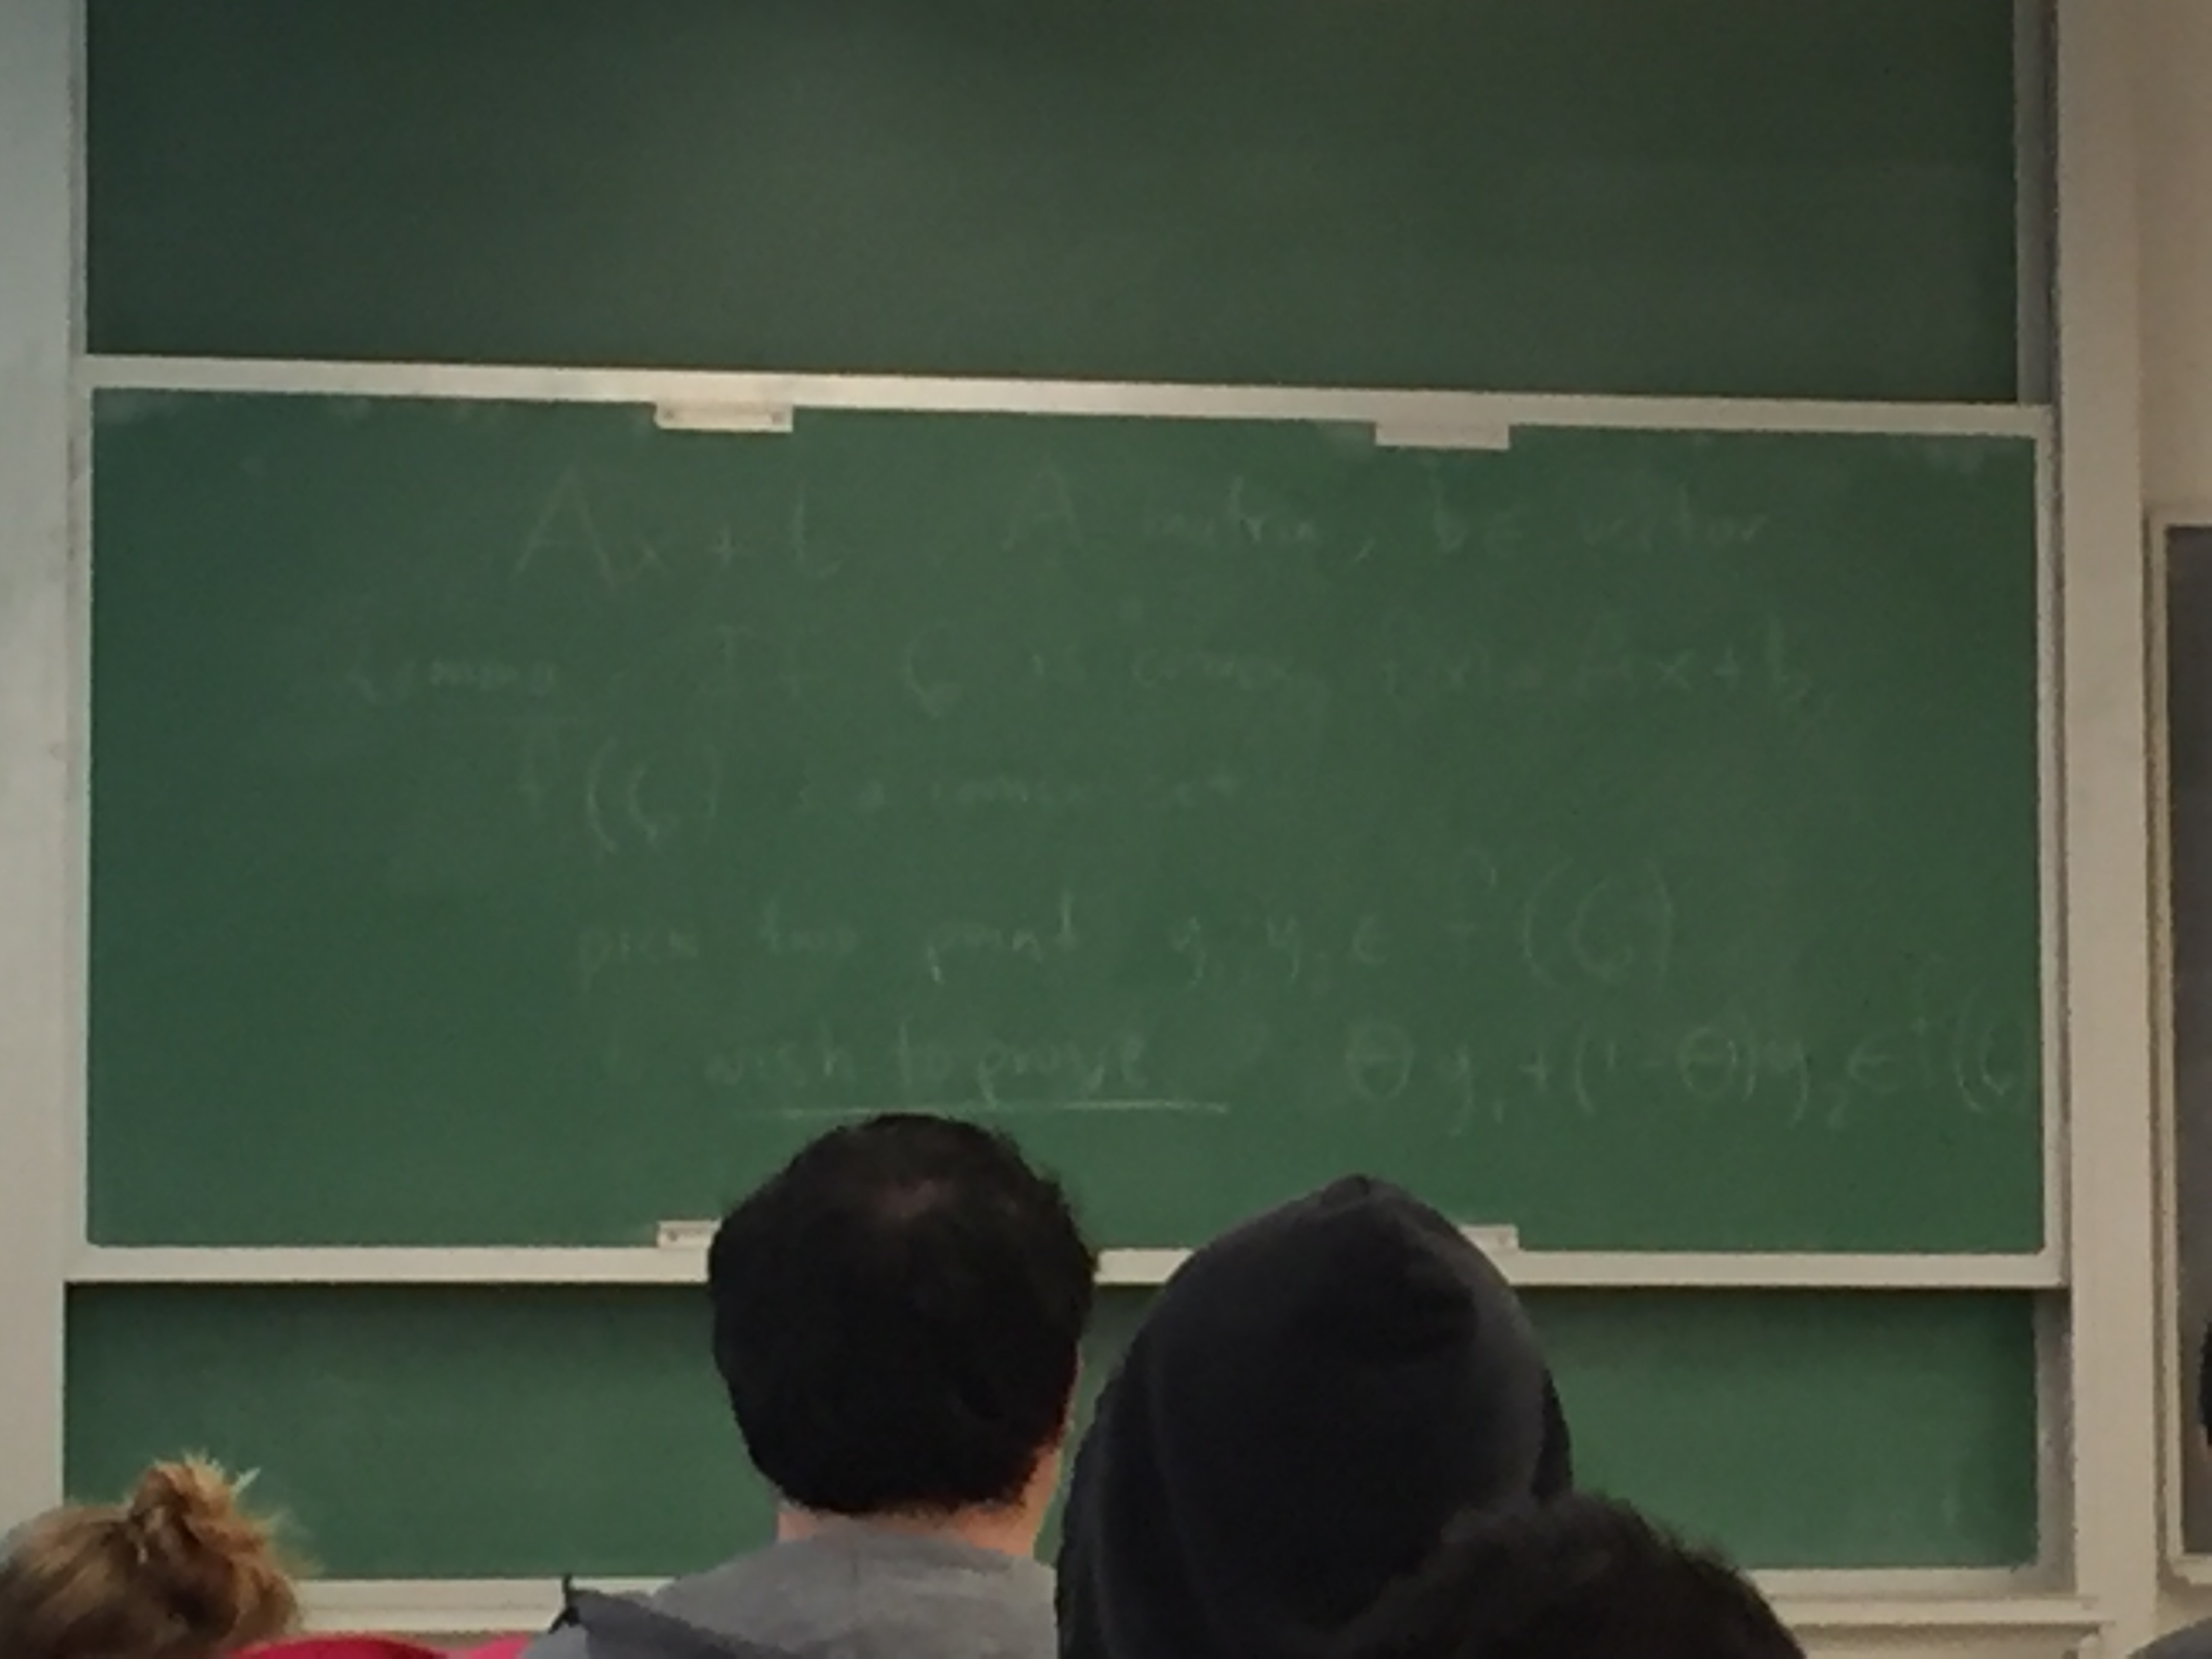 Ax + b A matrix, b ∈ vector
Lemma: If C is convex, f(x) = Ax + b,
f(C) is a convex set
pick two point y₁, y₂ ∈ f(C)
wish to prove θy₁ + (1-θ)y₂ ∈ f(C